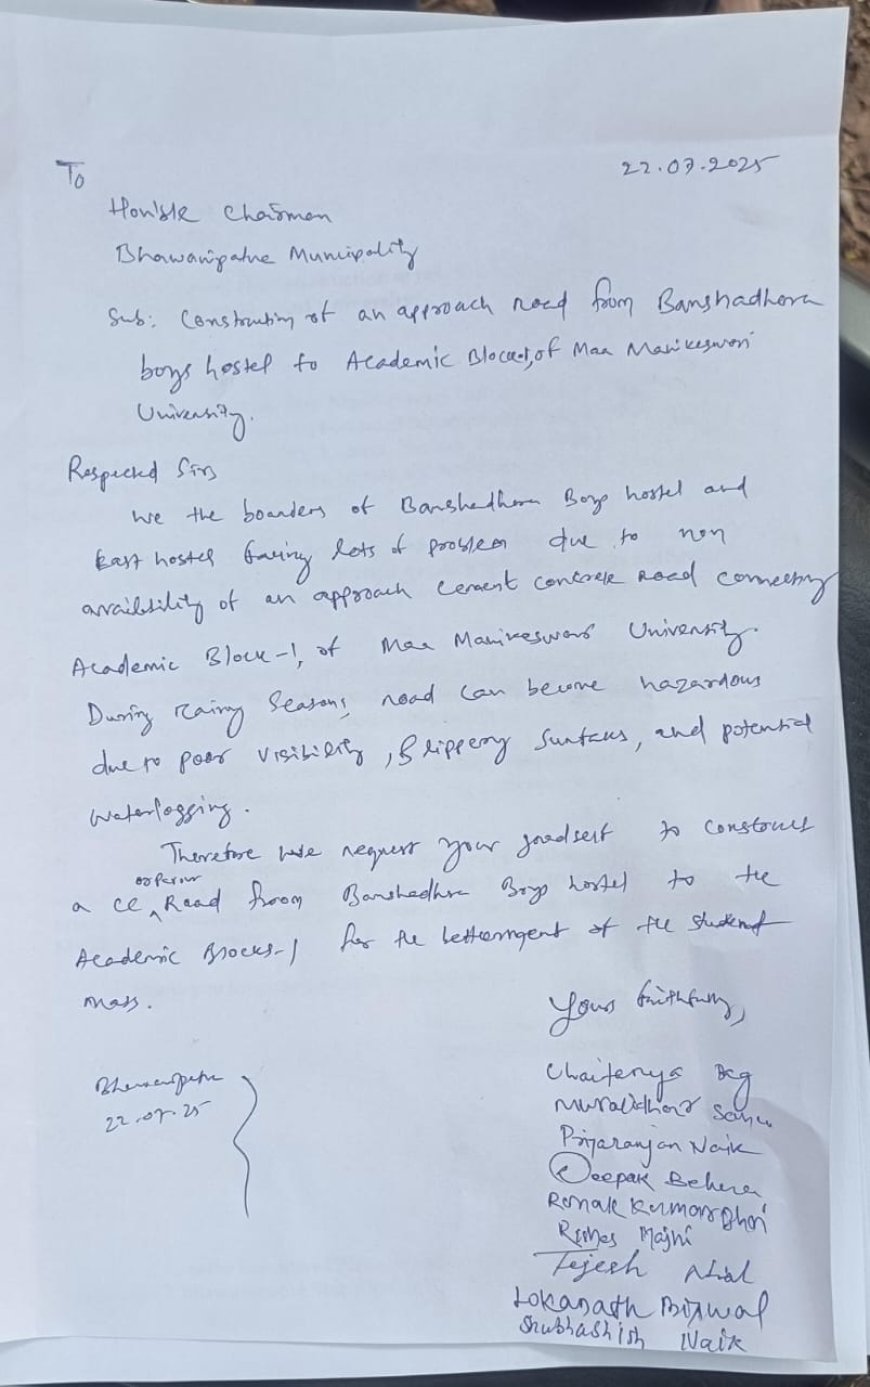 To
22.07.2025
Hon'ble Chairman
Bhawanipatna Municipality
Sub: Construction of an approach road from Banshadhara
boys hostel to Academic Block-1, of Maa Manikeswari
University.
Respected Sir,
We the boarders of Banshadhara Boys hostel and
East hostel facing lots of problem due to non
availability of an approach cement concrete road connecting
Academic Block-1, of Maa Manikeswari University.
During rainy seasons, road can become hazardous
due to poor visibility, slippery surfaces, and potential
waterlogging.
Therefore we request your goodself to construct
a CC Road from Banshadhara Boys hostel to the
Academic Block-1 for the betterment of the student
mass.
Yours faithfully,
Bhawanipatna
22.07.25
Chaitanya Bag
Muralidhar Sahu
Priyaranjan Naik
Deepak Behera
Ronak Kumar
Majhi
Tejesh
Lokanath Biswal
Shubhashish Naik